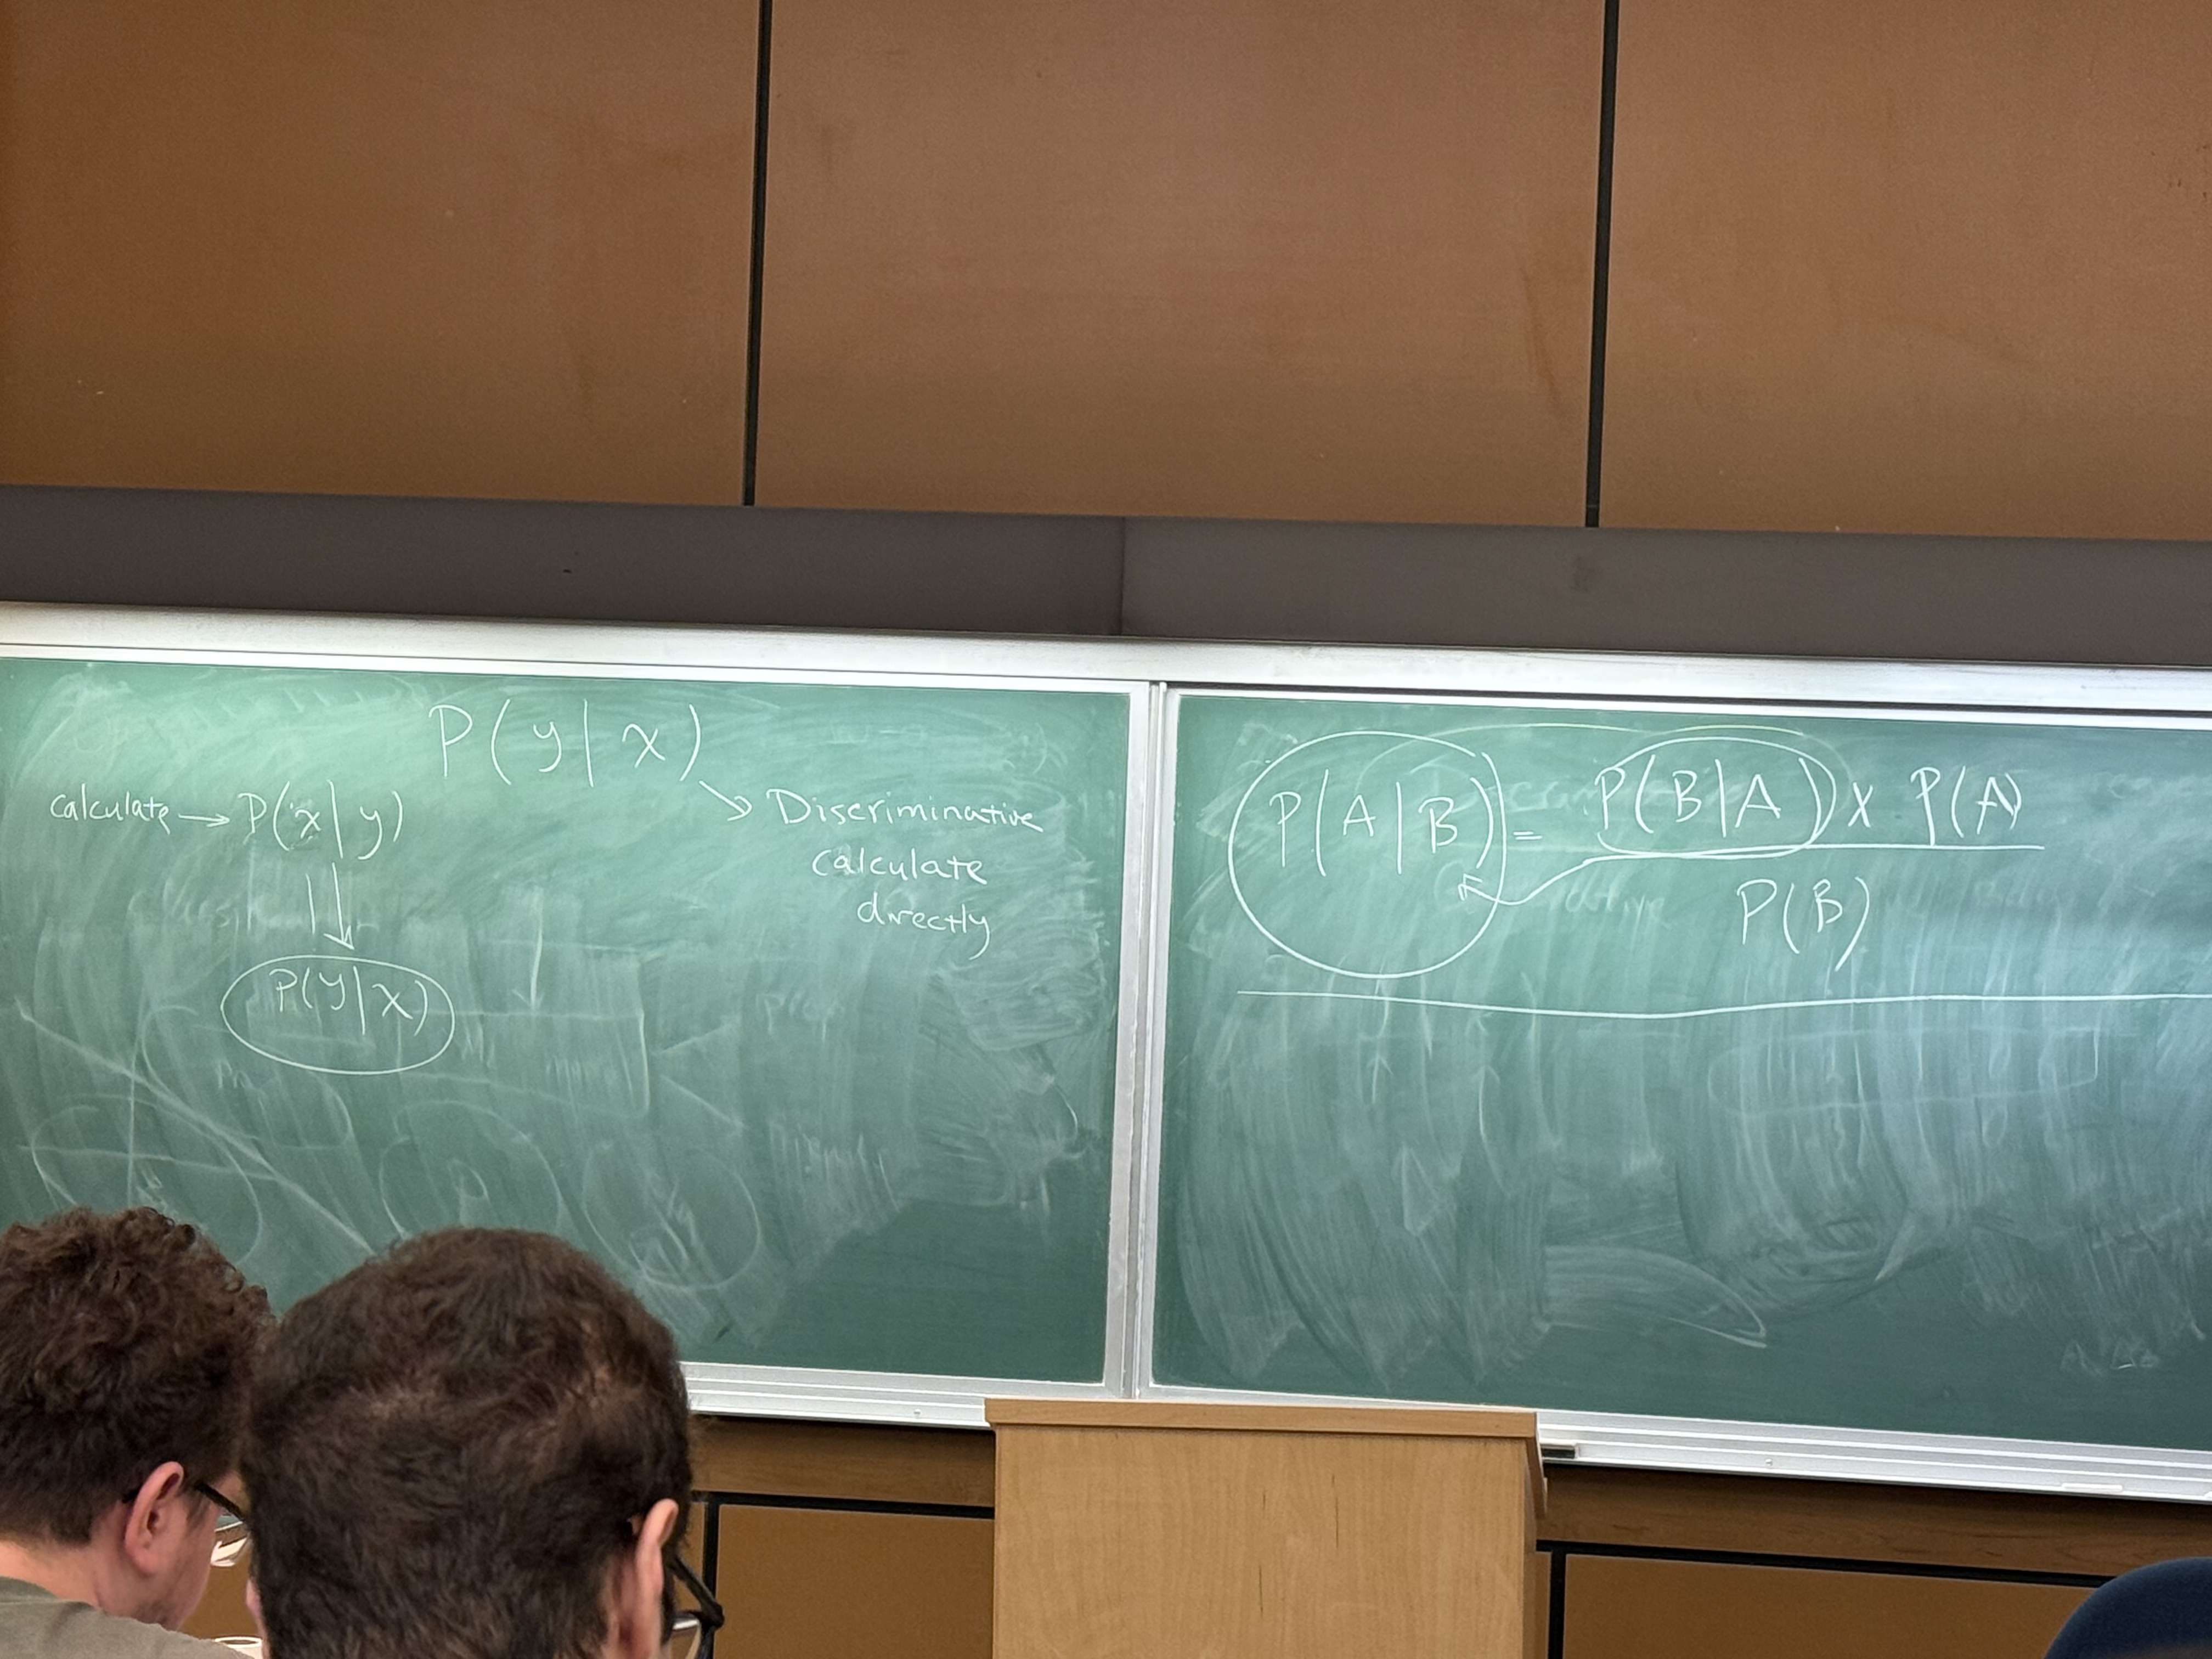 P(y|x)
calculate → P(x|y)
⇓
P(y|x)
↘ Discriminative
calculate
directly
P(A|B) = P(B|A) x P(A)
P(B)